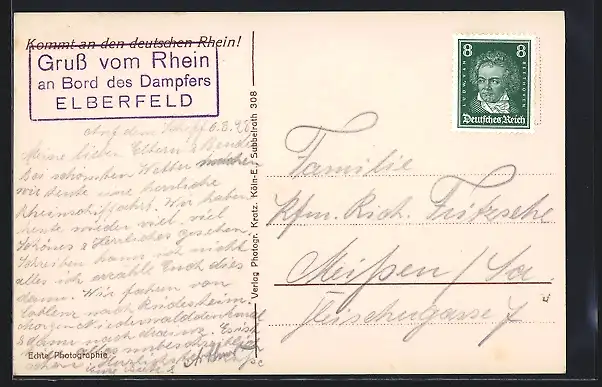 Kommt an den deutschen Rhein!
Gruß vom Rhein
an Bord des Dampfers
ELBERFELD
8 8
LUDW. VAN BEETHOVEN
Deutsches Reich
auf dem Schiff 6.8.28
Meine lieben Eltern & Bende
Bei schönstem Wetter machen
wir heute eine herrliche
Rheinschiffahrt. Wir haben
heute wieder viel viel
Schönes & Herrliches gesehen.
Schreiben kann ich nicht
alles ich erzähle Euch dies
dann. Wir fahren von
Coblenz nach Rüdesheim.
Morgen Niederwalddenkmal
& dann nach
alles unbeschreiblich
schön. Herzlichst
Echte Photographie
Verlag Photogr. Kratz, Köln-E., Subbelrath 308
Familie
Kfm. Rich. Fritzsche
Meißen / Sa.
Fleischergasse 7